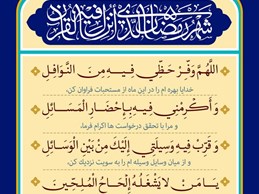 شهر رمضان الذی انزل فیه القرآن
اللَّهُمَّ وَفِّرْ حَظِّي فِيهِ مِنَ النَّوَافِلِ
خدایا بهره ام را در این ماه از مستحبات فراوان کن،
وَ أَكْرِمْنِي فِيهِ بِإِحْضَارِ الْمَسَائِلِ
و مرا با تحقق درخواست ها اکرام فرما،
وَ قَرِّبْ فِيهِ وَسِيلَتِي إِلَيْكَ مِنْ بَيْنِ الْوَسَائِلِ
و از میان وسایل وسیله ام را به سویت نزدیک کن،
يَا مَنْ لا يَشْغَلُهُ إِلْحَاحُ الْمُلِحِّينَ